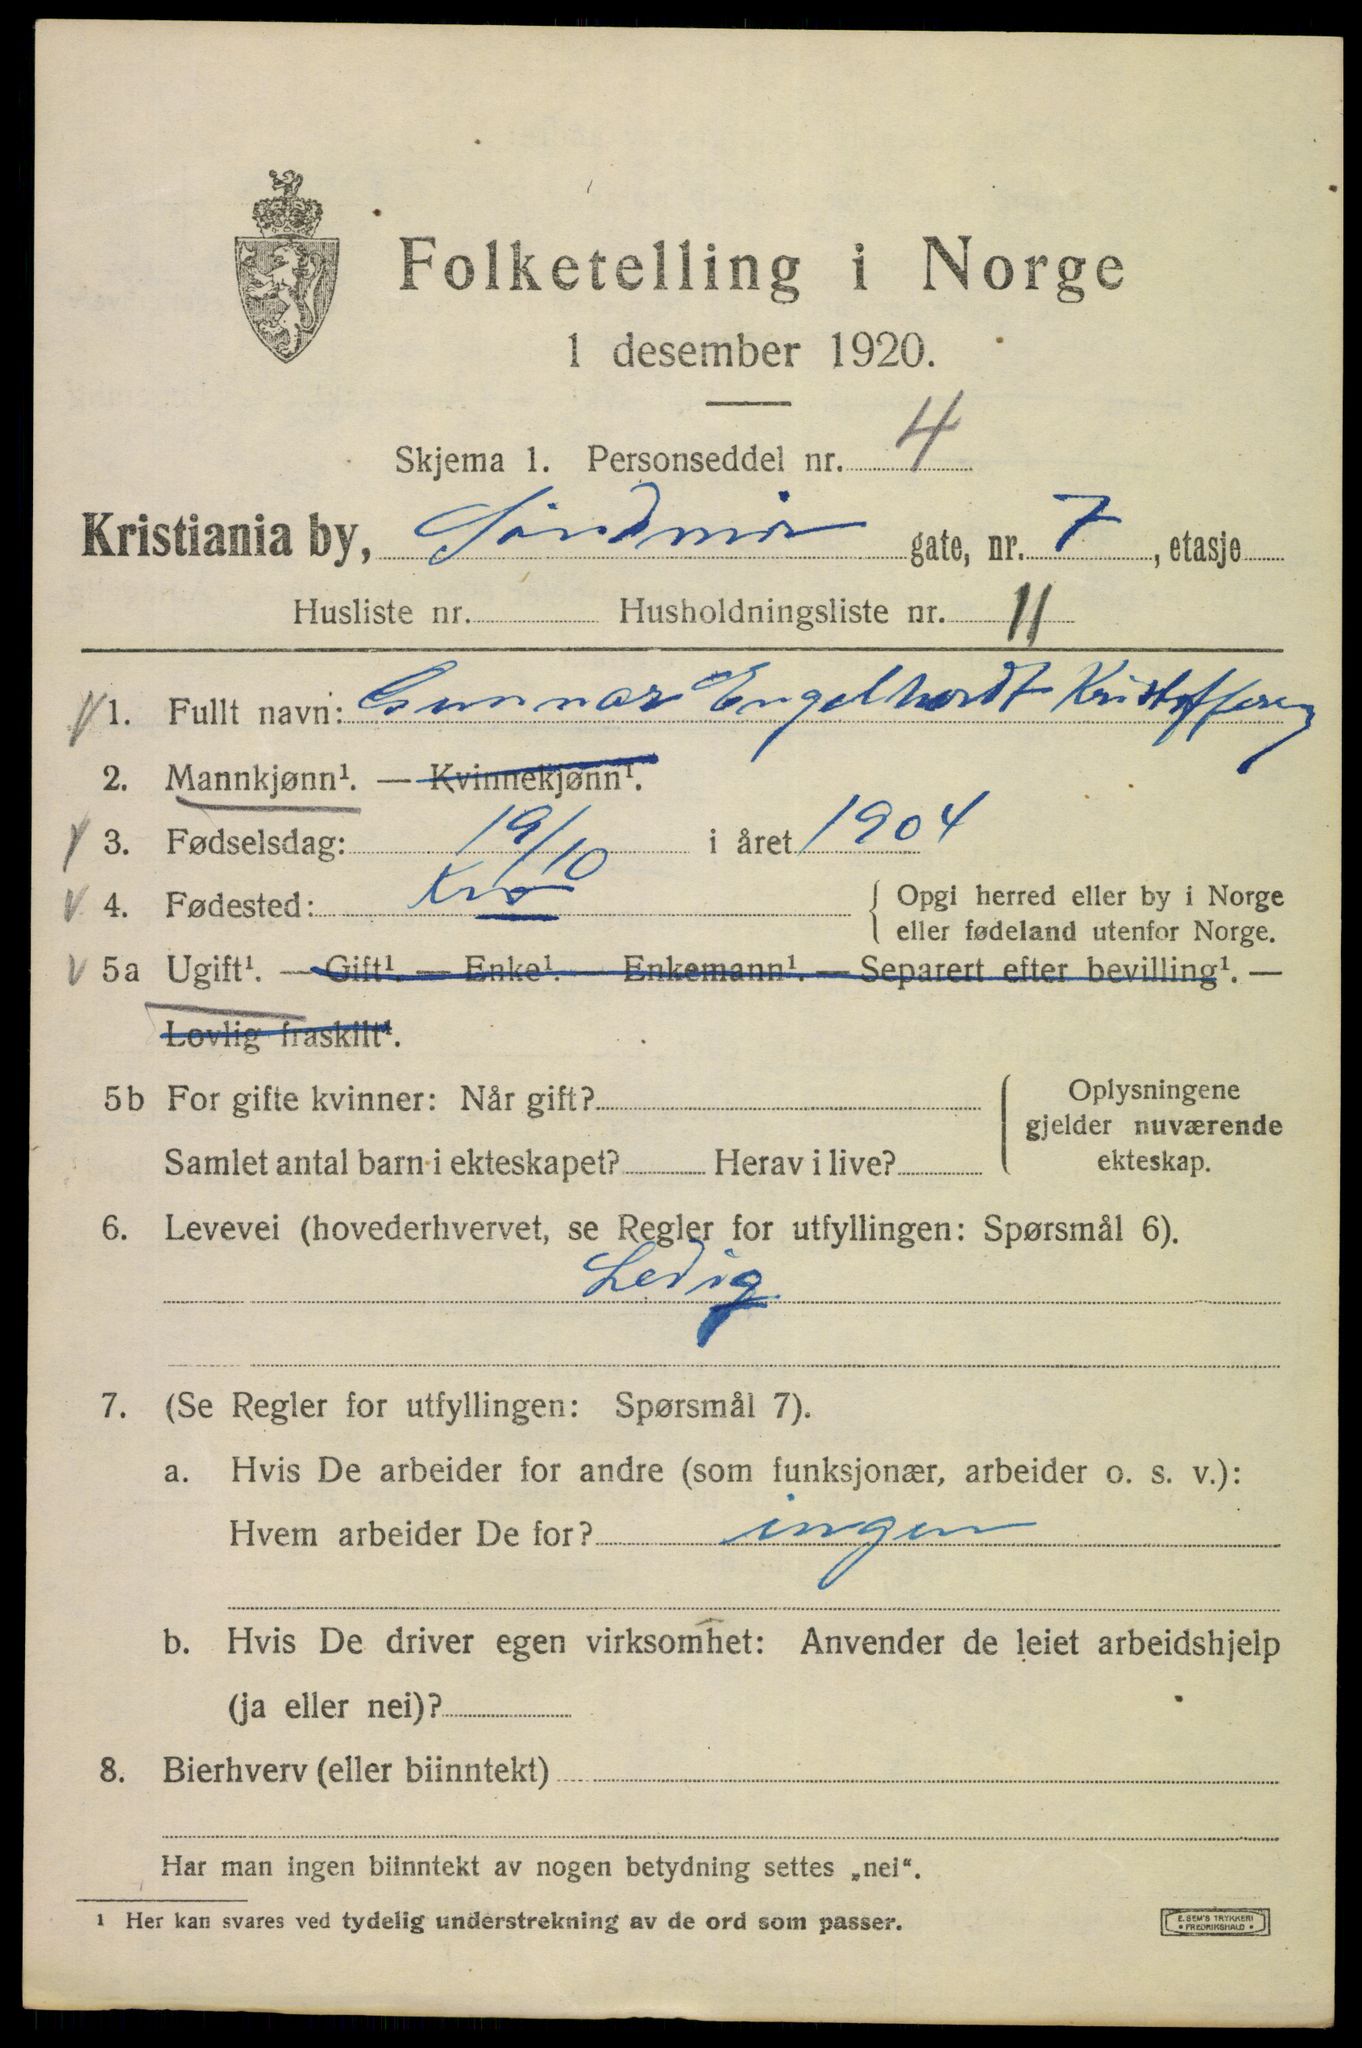 Folketelling i Norge
1 desember 1920.
Skjema 1. Personseddel nr. 4
Kristiania by, Söndmör gate, nr. 7, etasje
Husliste nr. Husholdningsliste nr. 11
1. Fullt navn: Gunnar Engelhardt Kristoffersen
2. Mannkjønn¹. — Kvinnekjønn¹.
3. Fødselsdag: 19/10 i året 1904
4. Fødested: Kra { Opgi herred eller by i Norge
eller fødeland utenfor Norge.
5a Ugift¹. — Gift¹. — Enke¹. — Enkemann¹. — Separert efter bevilling¹. —
Lovlig fraskilt¹.
5b For gifte kvinner: Når gift?
Samlet antal barn i ekteskapet? Herav i live?
Oplysningene
gjelder nuværende
ekteskap.
6. Levevei (hovederhvervet, se Regler for utfyllingen: Spørsmål 6).
Ledig
7. (Se Regler for utfyllingen: Spørsmål 7).
a. Hvis De arbeider for andre (som funksjonær, arbeider o. s. v.):
Hvem arbeider De for? ingen
b. Hvis De driver egen virksomhet: Anvender de leiet arbeidshjelp
(ja eller nei)?
8. Bierhverv (eller biinntekt)
Har man ingen biinntekt av nogen betydning settes „nei“.
¹ Her kan svares ved tydelig understrekning av de ord som passer.
E. SEM'S TRYKKERI
• FREDRIKSHALD •